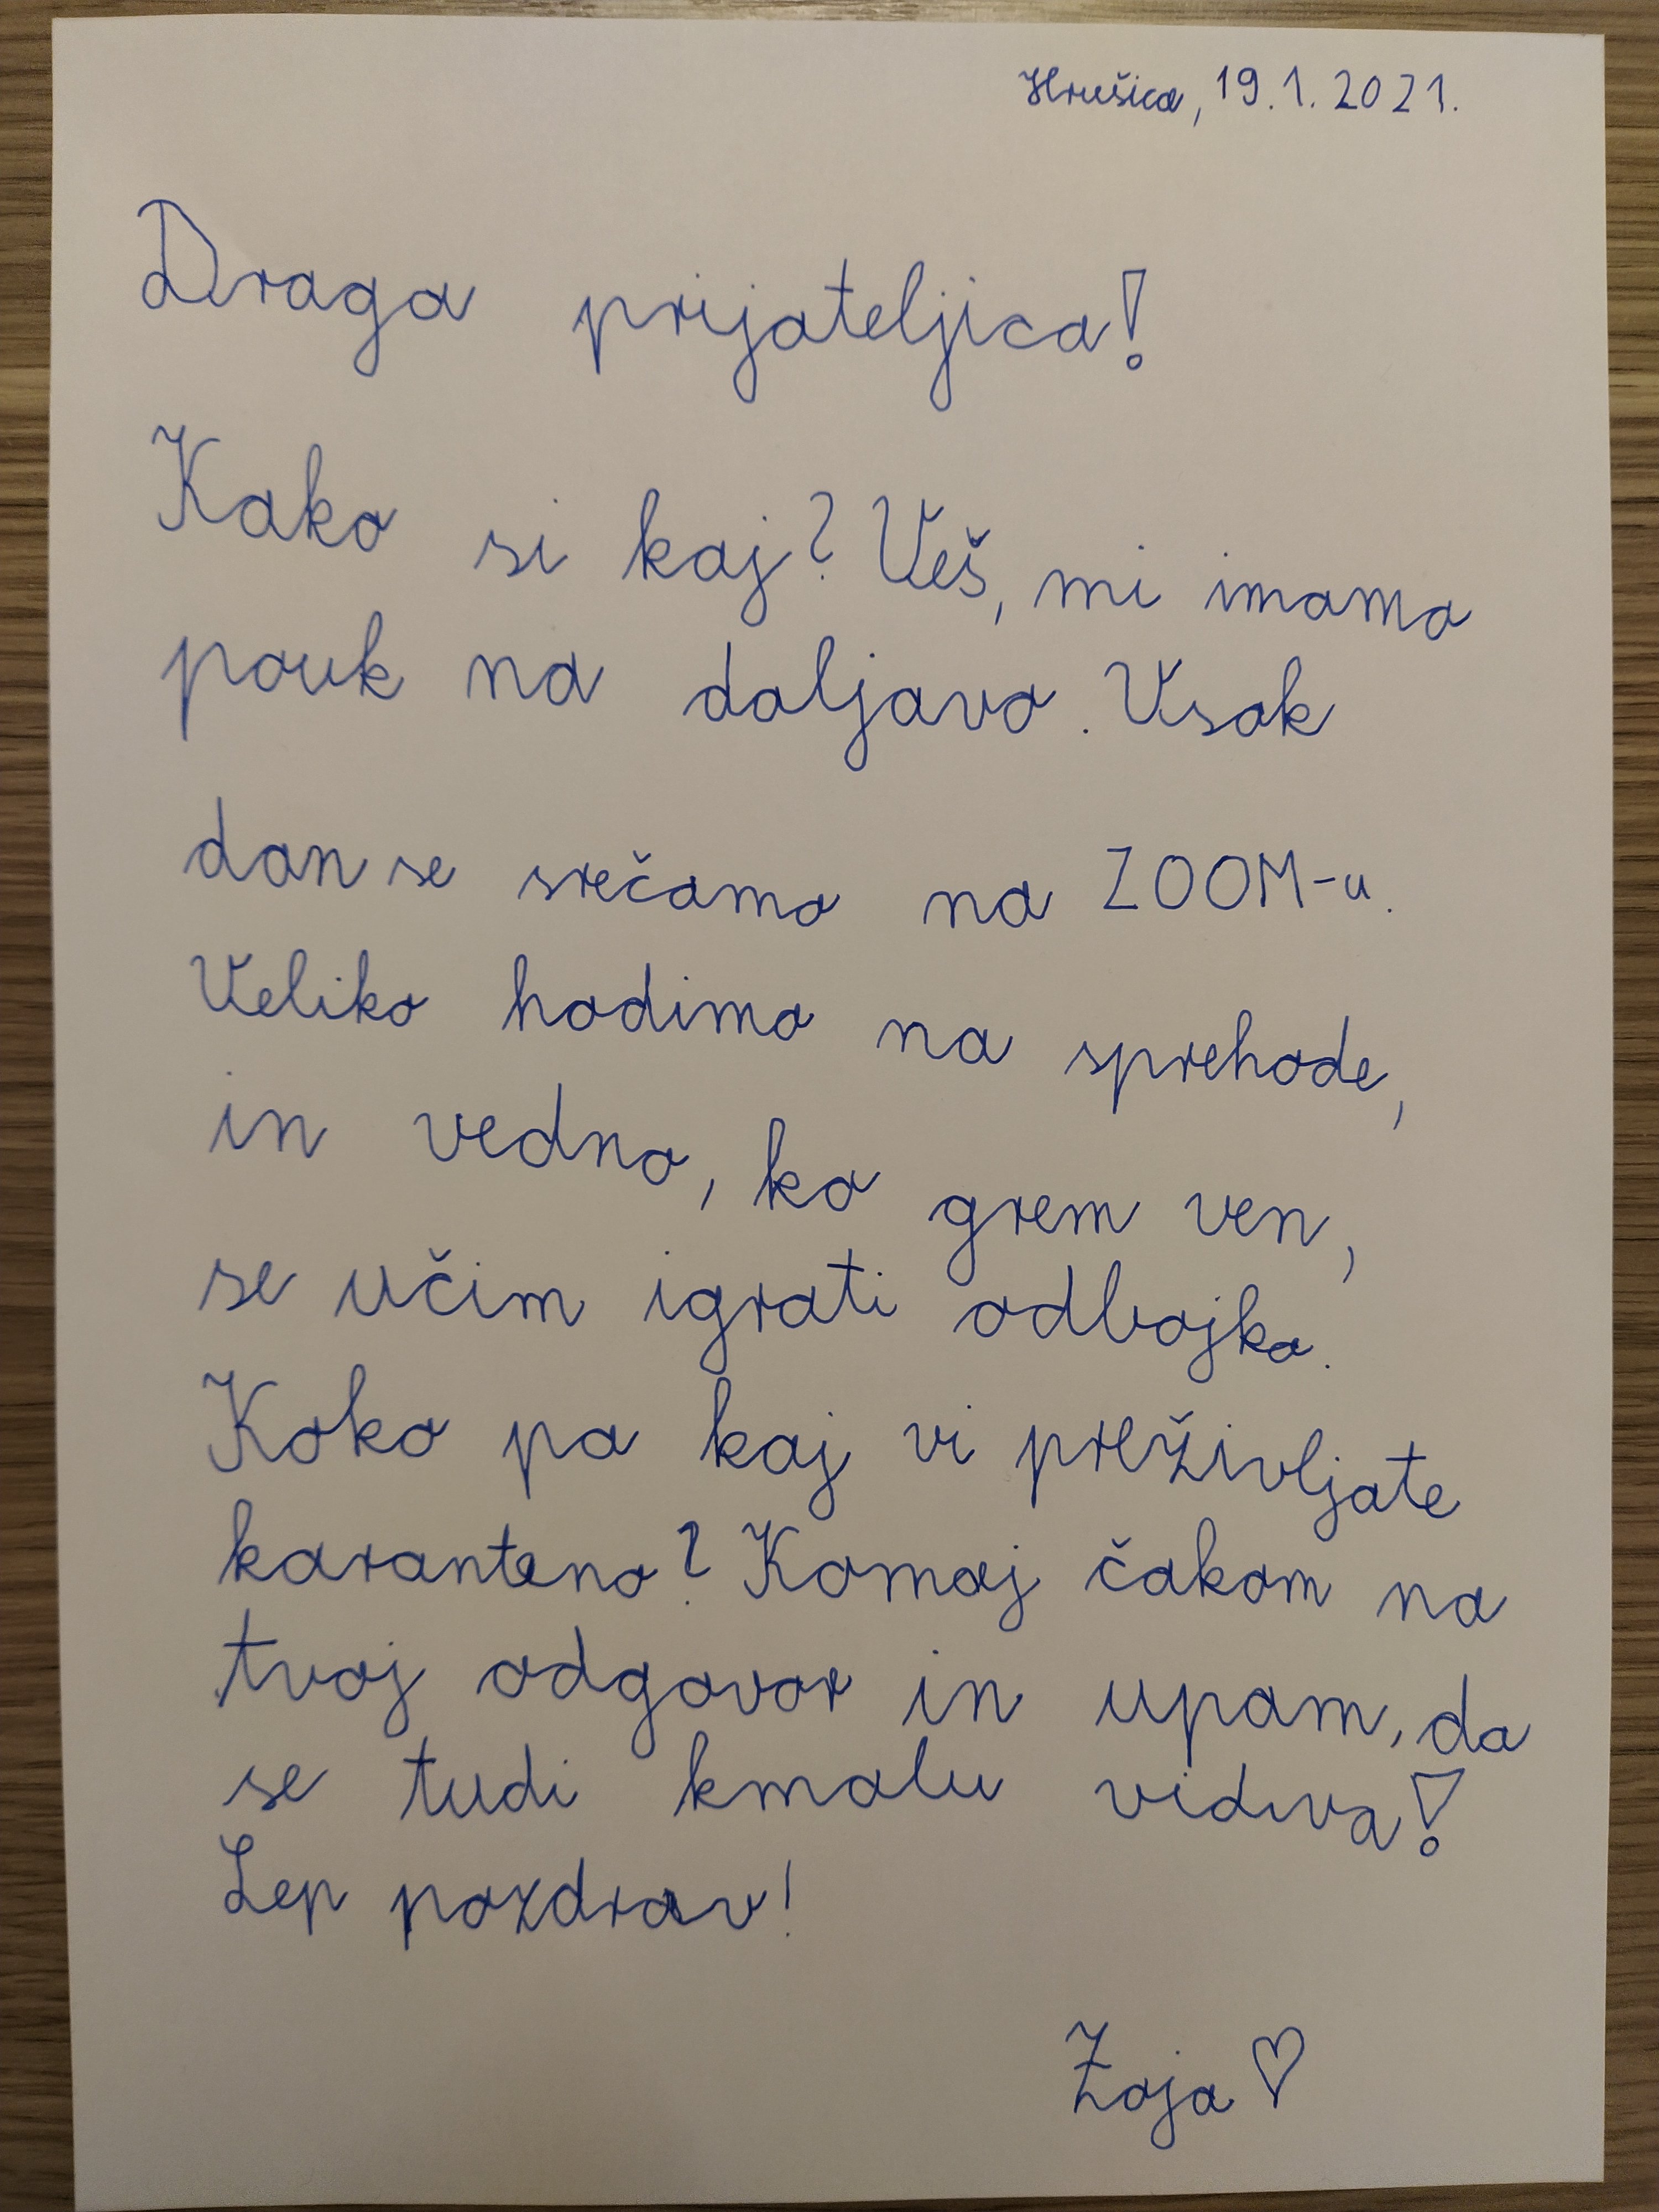 Hrušica, 19.1.2021.
Draga prijateljica!
Kako si kaj? Veš, mi imamo
pouk na daljavo. Vsak
dan se srečamo na ZOOM-u.
Veliko hodimo na sprehode,
in vedno, ko grem ven,
se učim igrati odbojko.
Kako pa kaj vi preživljate
karanteno? Komaj čakam na
tvoj odgovor in upam, da
se tudi kmalu vidiva!
Lep pozdrav!
Zoja ♡